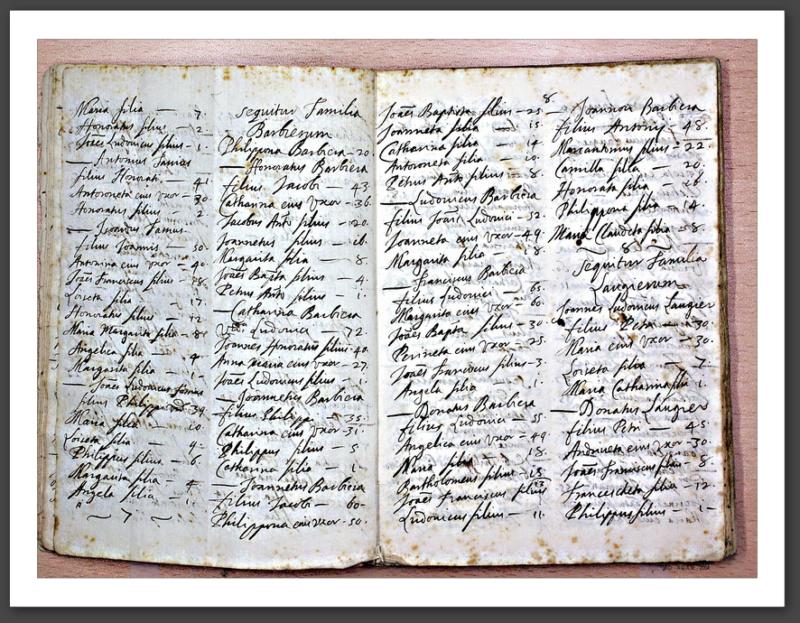 Maria filia — 7.
Honoratus filius — 2.
Joães Ludovicus filius - 1.
— Antonius
filius Honorati 41
Antoroneta eius vxor - 30
Honoratus filius 2.
—
filius Joannis — 50.
Antonina eius vxor - 40
Joães Franciscus filius
Loiseta filia 17.
Honoratus filius — 12
Maria Margarita filia - 8.
Angelica filia — 4
Margarita filia — 1.
— Joães Ludovicus
filius Philippi 39.
Maria filia — 10
Loiseta filia 9.
Philippus filius - 6.
Margarita filia 4
Angela filia 1.
~ 7 ~
sequitur familia
Barbierum
Philippona Barbiera - 20.
— Honoratus Barbiera
filius Jacobi — 43.
Catharina eius vxor - 36.
Jacobus Antõ filius - 20.
Joannetus filius — 16.
Margarita filia — 8.
Joães Bapta filius — 4.
Petrus Antõ filius — 1.
— Catharina Barbiera
Ludovici — 72.
Joannes Honoratus filius - 40.
Anna Maria eius vxor - 27.
Joães Ludovicus filius 1.
— Joannetus Barbiera
filius Philippi — 35.
Catharina eius vxor - 31.
Philippus filius — 5
Catharina filia — 1
— Joannetus Barbiera
filius Jacobi — 60
Philippona eius vxor - 50.
8.
Joães Baptista filius - 25
Joanneta filia — 15.
Catharina filia — 14
Antoroneta filia — 10.
Petrus Antõ filius - 8.
— Ludovicus Barbiera
filius Joãis Ludovici - 52.
Joanneta eius vxor - 49.
Margarita filia — 8.
— Franciscus Barbiera
filius Ludovici — 65.
Margarita eius vxor - 60.
Joães Bapta filius - 30.
Perineta eius vxor - 25.
Joães Franciscus filius - 3.
Angela filia — 1.
— Donatus Barbiera
filius Ludovici — 55.
Angelica eius vxor - 49
Maria filia — 18.
Bartholomeus filius - 15
Joães Franciscus filius 13
Ludovicus filius - 11.
— Joannon Barbiera
filius Antonij - 48.
Marcantonius filius - 22.
Camilla filia — 20.
Honorata filia — 16.
Philippona filia - 14.
Maria Claudeta filia - 8
8
Sequitur familia
Laugierum
Joannes Ludovicus Laugier
filius Petri — 30.
Maria eius vxor - 30.
Loiseta filia — 7
Maria Catharina filia 1.
— Donatus Laugier
filius Petri — 45
Andrineta eius vxor - 30.
Joães Franciscus filius - 8.
Francescheta filia - 12.
Philippus filius — 1